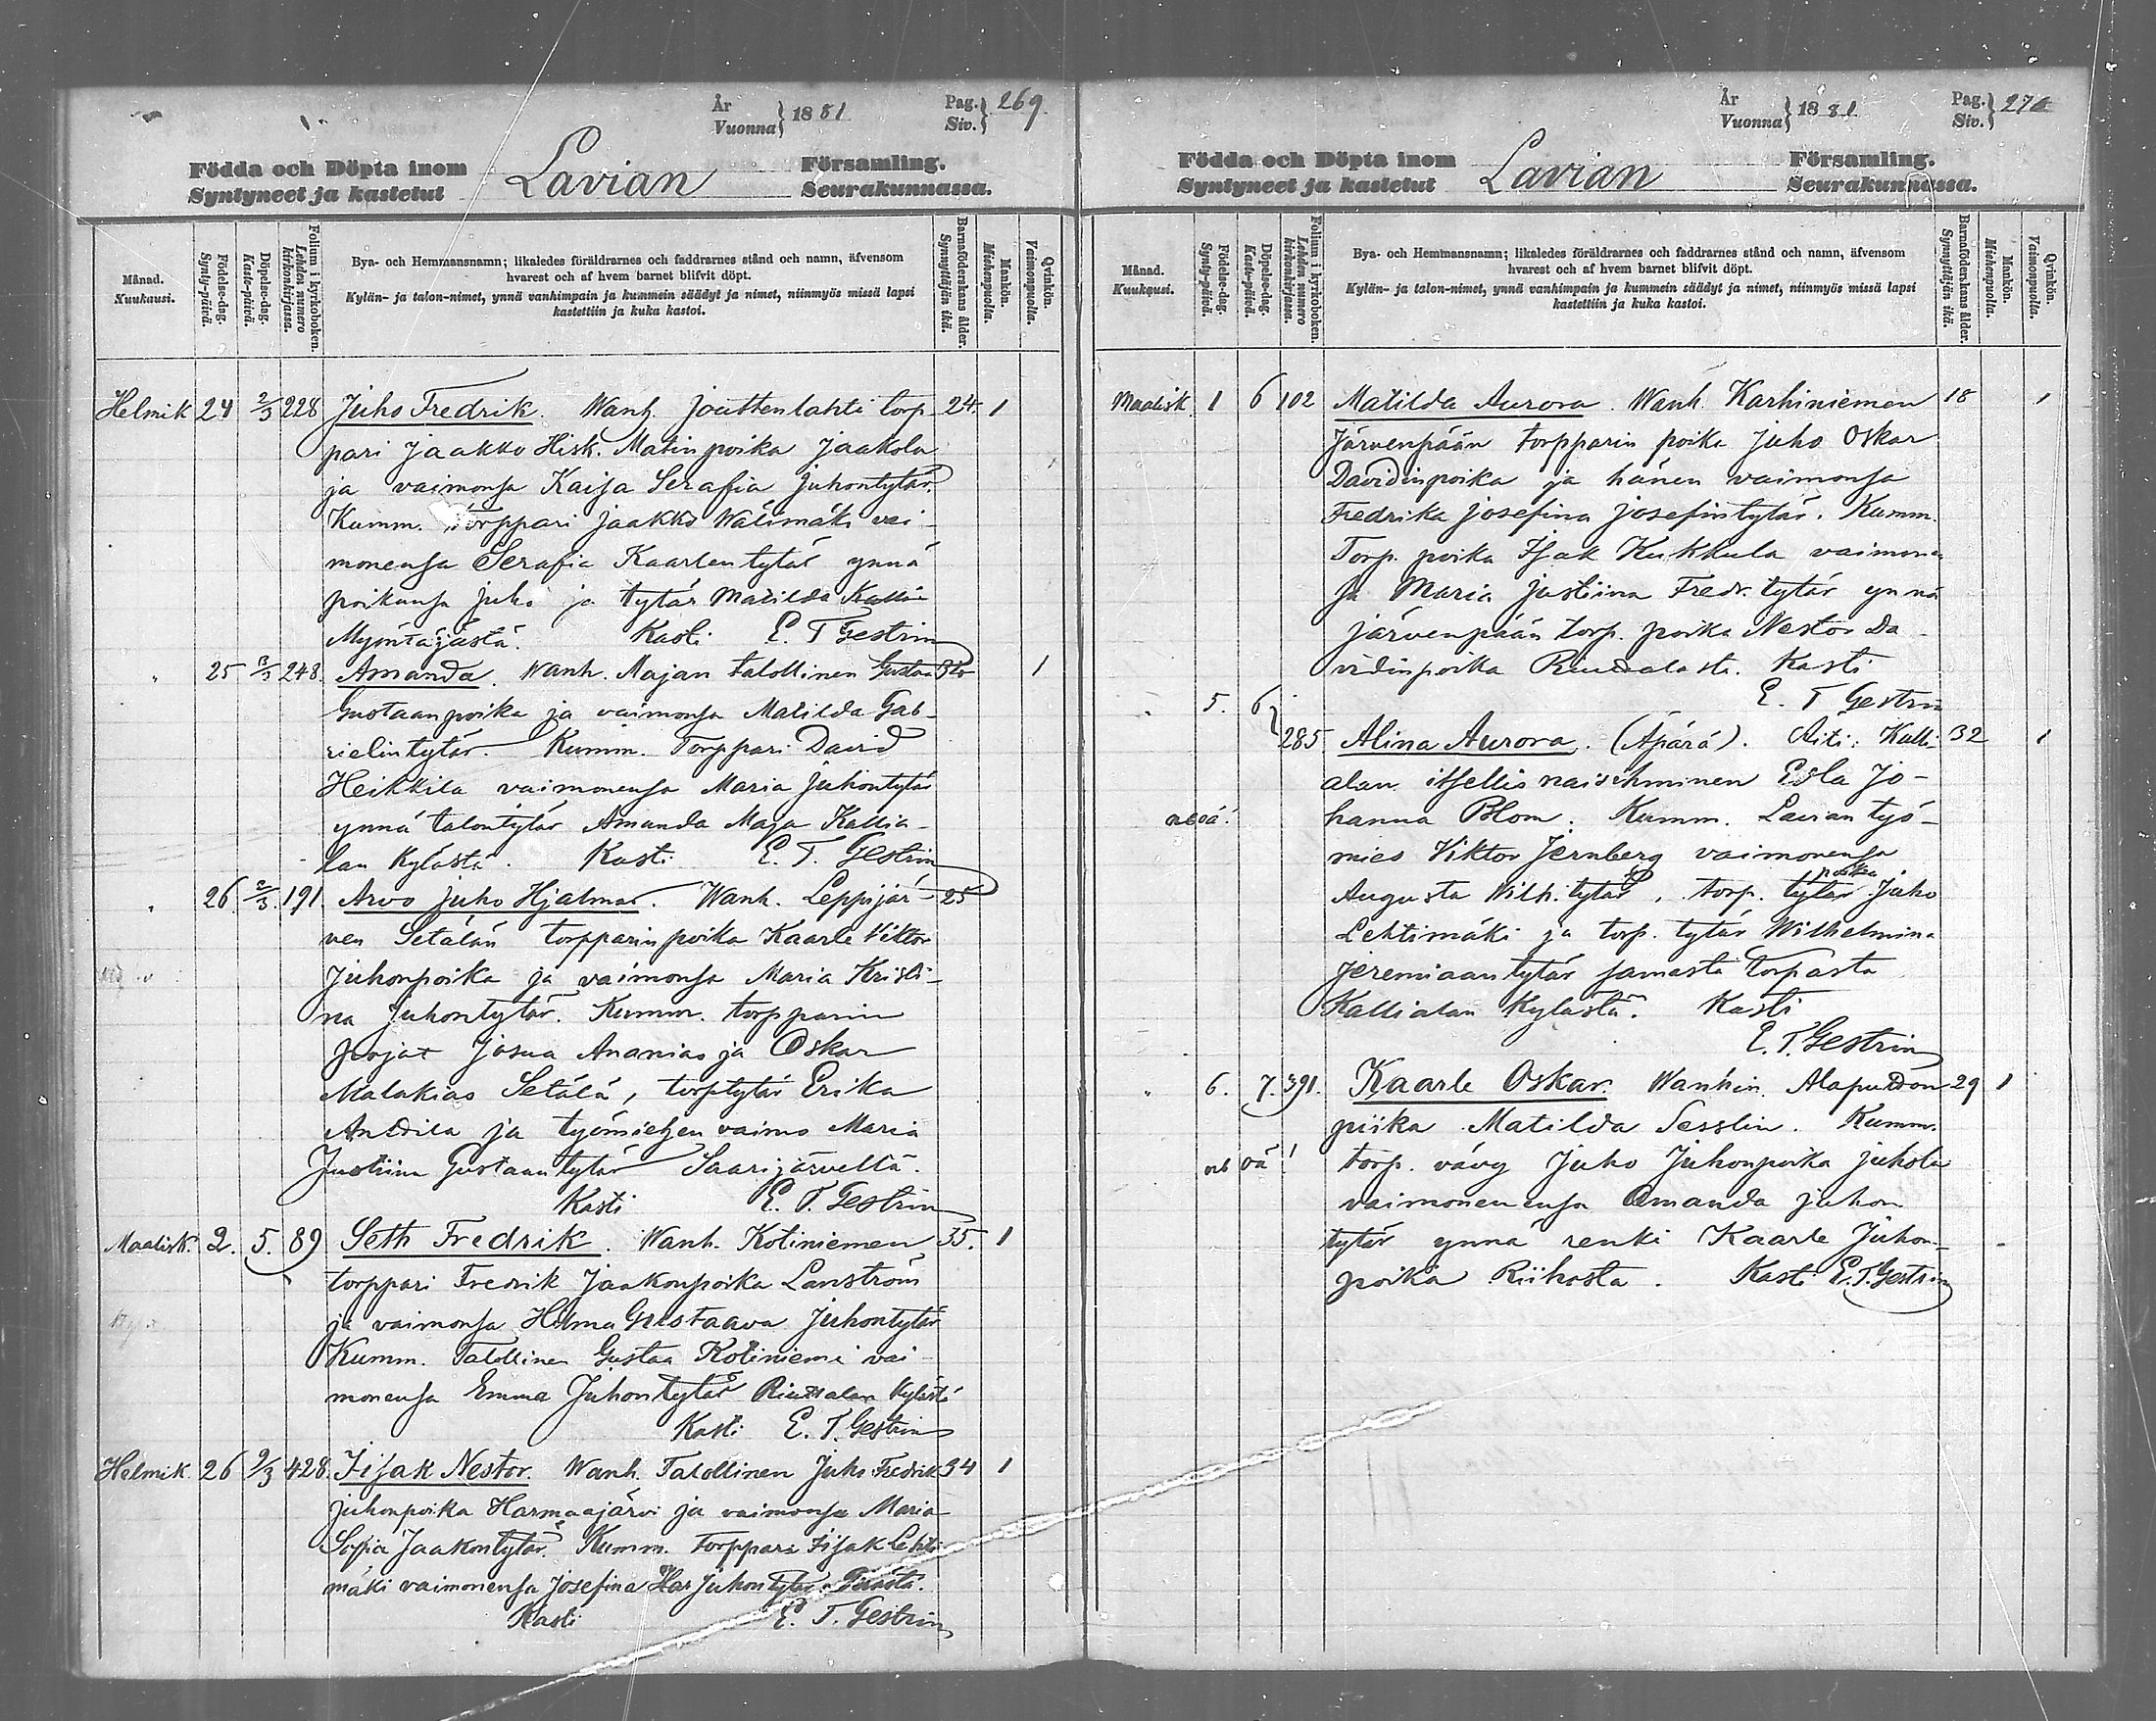 År
Vuonna } 1881
Pag.
Siv. } 269
Födda och Döpta inom
Syntyneet ja kastetut
Lavian
Församling.
Seurakunnassa.
Månad.
Kuukausi.
Födelse-dag.
Synty-päivä.
Döpelse-dag.
Kaste-päivä.
Folium i kyrkoboken.
Lehden numero
kirkonkirjassa.
Bya- och Hemmansnamn; likaledes föräldrarnes och faddrarnes stånd och namn, äfvensom
hvarest och af hvem barnet blifvit döpt.
Kylän- ja talon-nimet, ynnä vanhimpain ja kummein säädyt ja nimet, niinmyös missä lapsi
kastettiin ja kuka kastoi.
Barnaföderskans ålder.
Synnyttäjän ikä.
Mankön.
Miehenpuolia.
Qvinkön.
Vaimonpuolia.
Helmik 24 2/3 228 Juho Fredrik. Wanh. Jouttenlahti torp 24. 1
pari Jaakko Hisk. Matinpoika Jaakola
ja vaimonsa Kaisa Serafia Juhontytär.
Kumm. Torppari Jaakko Wälimäki vai-
monensa Serafia Kaarlentytär ynnä
poikansa Juho ja tytär Matilda
Myöntäjästä. Kasti E. T Gestrin
" 25 2/3 248. Amanda. Wanh. Majan talollinen Gustaa 1
Gustaanpoika ja vaimonsa Matilda Gab-
rielintytär. Kumm. Torppari David
Heikkila vaimonensa Maria Juhontytär
ynnä talontytär Amanda Maja Kallia-
lan kylästä. Kasti E. T. Gestrin
" 26. 2/3. 191. Arvo Juho Hjalmar. Wanh. Leppijär- 25
ven Setälän torpparinpoika Kaarle Viktor
Juhonpoika ja vaimonsa Maria Kristi-
na Juhontytär. Kumm. torpparin
pojat Josua Ananias ja Oskar
Malakias Setälä, torp tytär Erika
Anttila ja työmiehen vaimo Maria
Justiina Gustaantytär Saarijärveltä.
Kasti E. T. Gestrin
Maalisk. 2. 5. 89 Seth Fredrik. Wanh. Kotiniemen 35. 1
torppari Fredrik Jaakonpoika Lanström
ja vaimonsa Hilma Gustaava Juhontytär
Kumm. Talollinen Gustaa Kotiniemi vai-
monensa Emma Juhontytär Riuttalan kylästä
Kasti E. T. Gestrin
Helmik 26 9/3 428. Iisak Nestor. Wanh. Talollinen Juho Fredrik 34 1
Juhonpoika Harmaajärvi ja vaimonsa Maria
Sofia Jaakontytär. Kumm. Torppari Iisak Lehti
mäki vaimonensa Josefina Juhontytär
Kasti E. T. Gestrin
År
Vuonna } 1881
Pag.
Siv. } 270
Födda och Döpta inom
Syntyneet ja kastetut
Lavian
Församling.
Seurakunnassa.
Månad.
Kuukausi.
Födelse-dag.
Synty-päivä.
Döpelse-dag.
Kast-päivä.
Folium i kyrkoboken.
Lehden numero
kirkonkirjassa.
Bya- och Hemmansnamn; likaledes föräldrarnes och faddrarnes stånd och namn, äfvensom
hvarest och af hvem barnet blifvit döpt.
Kylän- ja talon-nimet, ynnä vanhimpain ja kummein säädyt ja nimet, niinmyös missä lapsi
kastettiin ja kuka kastoi.
Barnaföderskans ålder.
Synnyttäjän ikä.
Mankön.
Miehenpuolia.
Qvinkön.
Vaimonpuolia.
Maalisk. 1 6 102 Matilda Aurora. Wanh. Karhiniemen 18 1
Järvenpään torpparin poika Juho Oskar
Davidinpoika ja hänen vaimonsa
Fredrika Josefina Josefintytär. Kumm.
Torp. poika Isak Kukkula vaimonen
sa Maria Justiina Fredr. tytär ynnä
Järvenpään torp. poika Nestor Da-
vidinpoika Kasti
E. T Gestrin
" 5. 6 285 Alina Aurora. (Äpärä). Äiti: Kalli- 32 1
alan itsellis naisihminen Eela Jo-
hanna Blom. Kumm. Lavian työ-
mies Viktor Jernberg vaimonensa
Augusta Wilh. tytär, torp. tytär poika Juho
Lehtimäki ja torp. tytär Wilhelmina
Jeremiaantytär samasta torpasta
Kallialan kylästä. Kasti
E. T. Gestrin
" 6. 7. 391. Kaarle Oskar. Wanhin. Alapuddon 29 1
piika Matilda Sesslin. Kumm.
torp. vävy Juho Juhonpoika Juhola
vaimonenensa Amanda Juhon
tytär ynnä renki Kaarle Juhon-
poika Riihosta. Kasti E. T. Gestrin